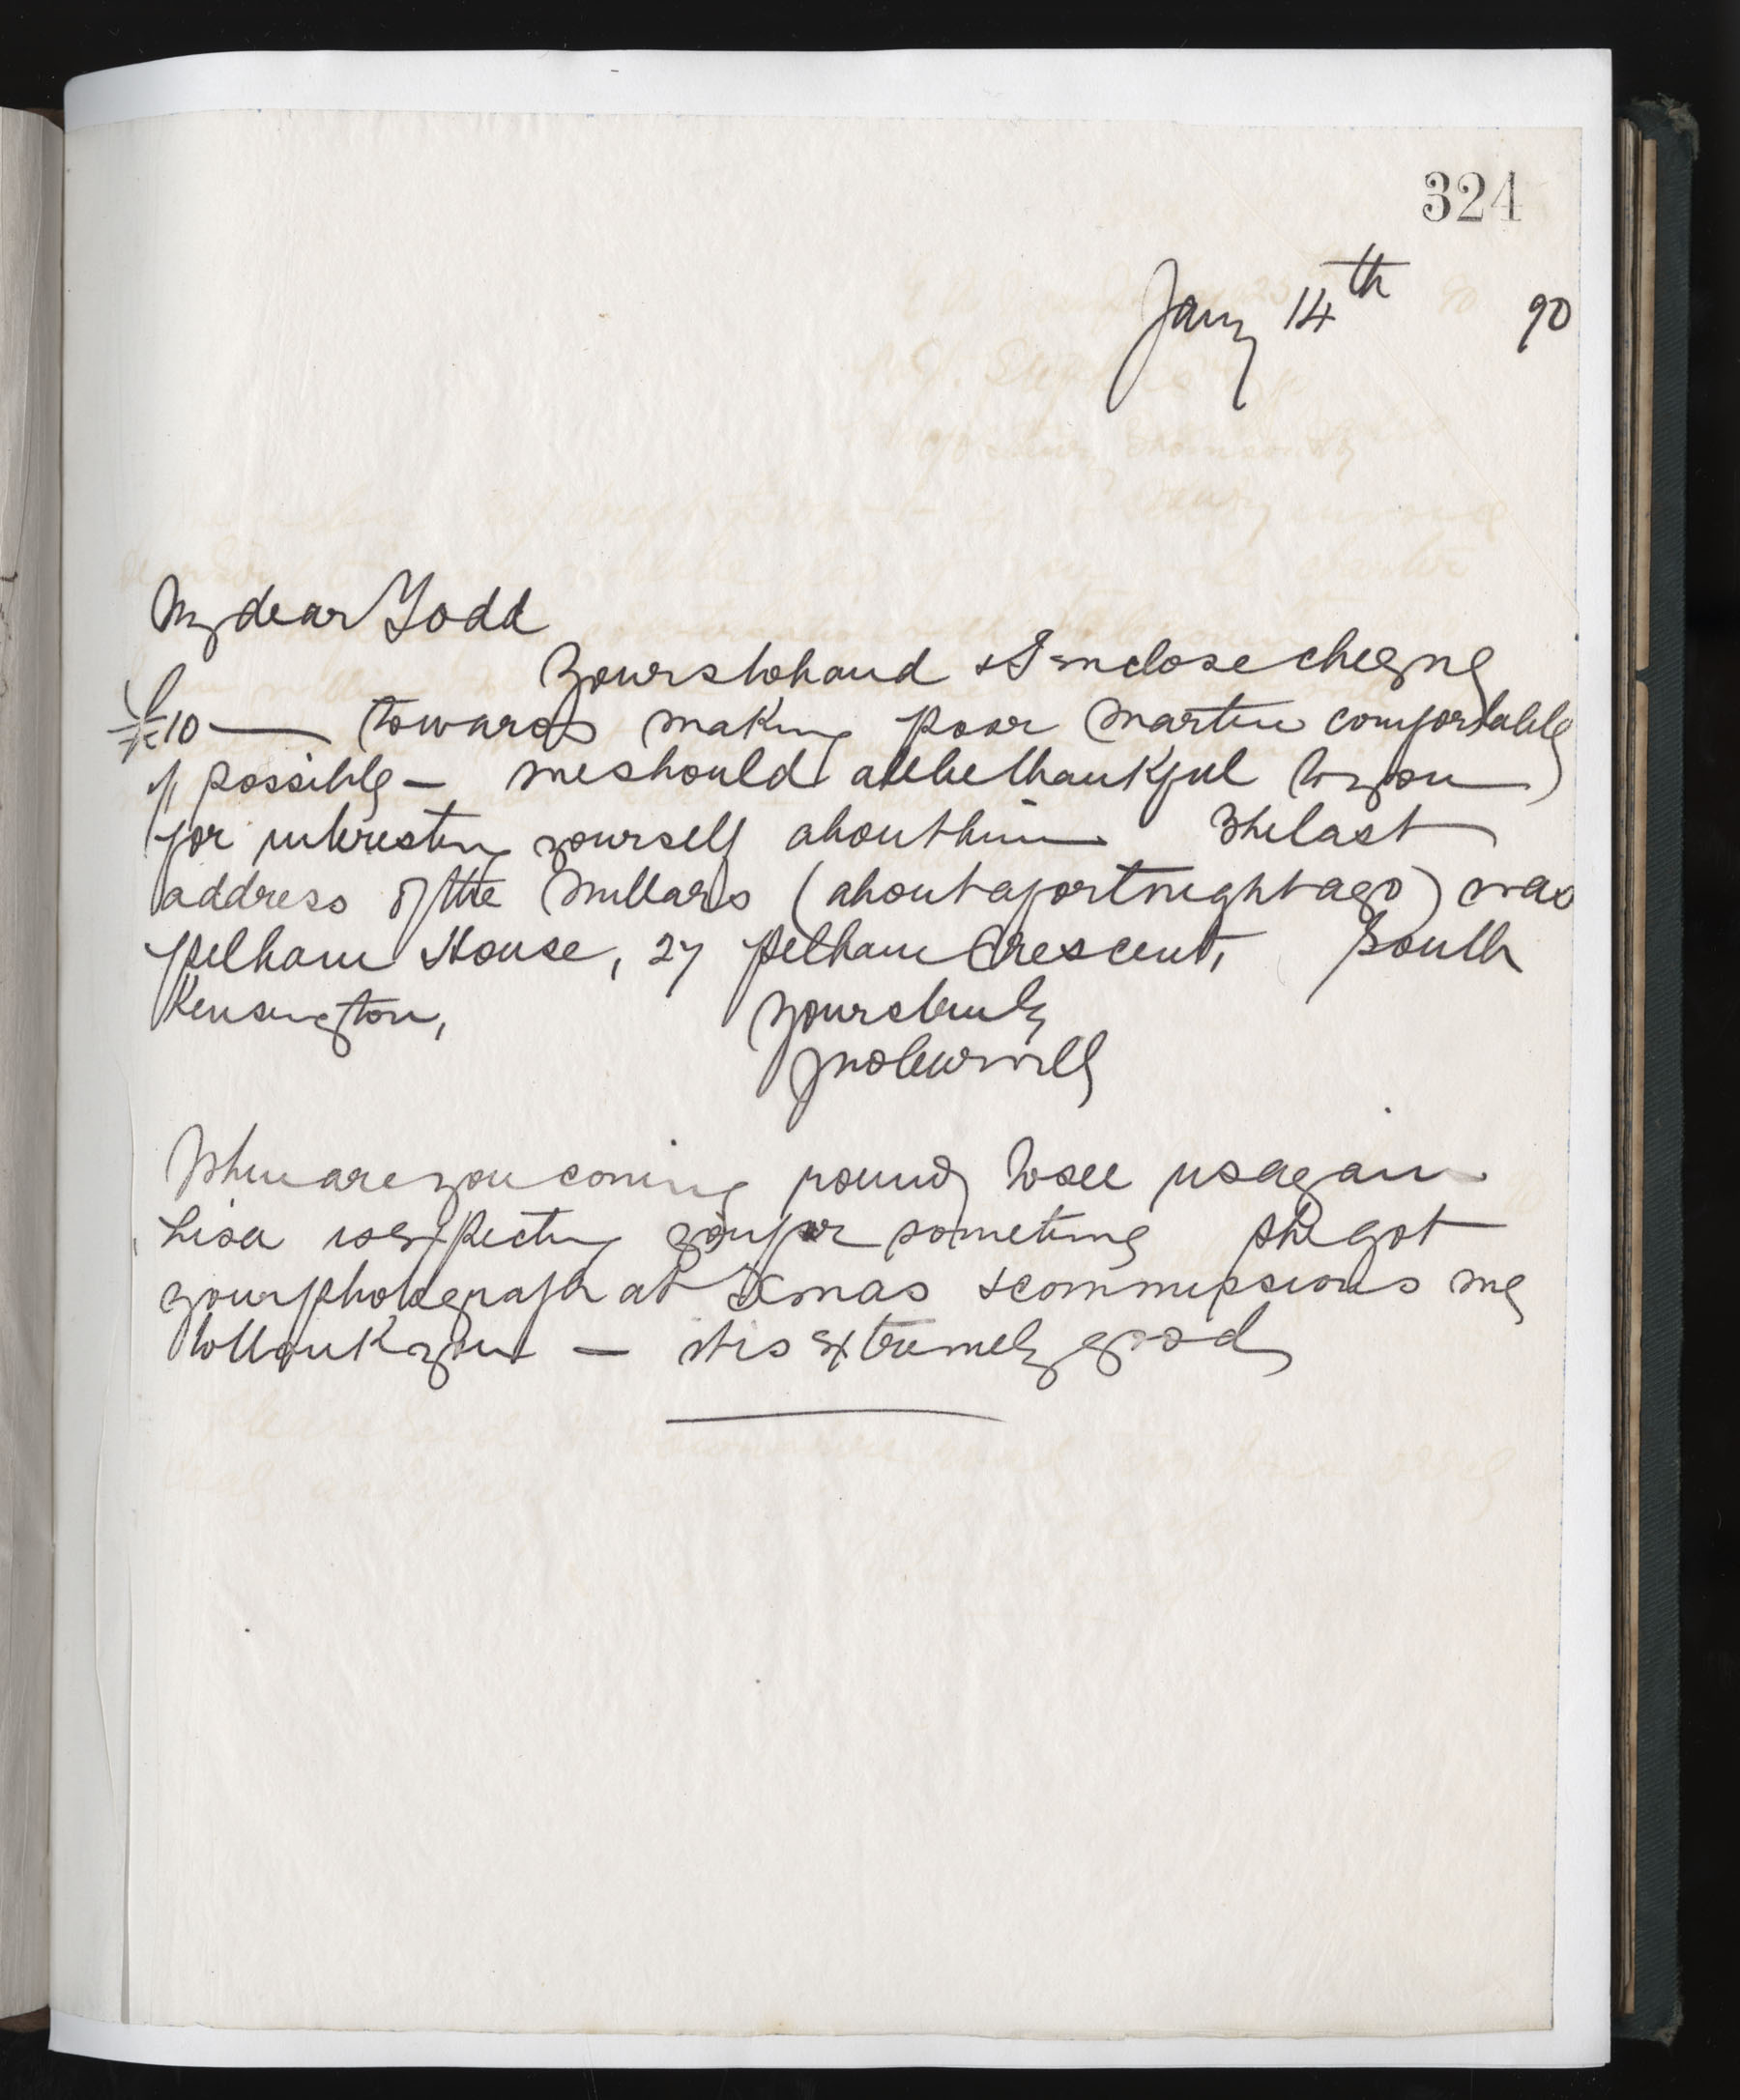 324
Jany 14th 90
My dear Todd
Yours to hand & I enclose cheque
£10 — towards making poor Martin comfortable
if possible — we should all be thankful to you
for interesting yourself about him The last
address of the Millars (about a fortnight ago) was
Pelham House, 27 Pelham Crescent, South
Kensington,
Yours truly
Jno Curwill
When are you coming round to see us again
Lisa is expecting you for sometime she got
your photograph at Xmas & commissions me
to thank you — it is extremely good